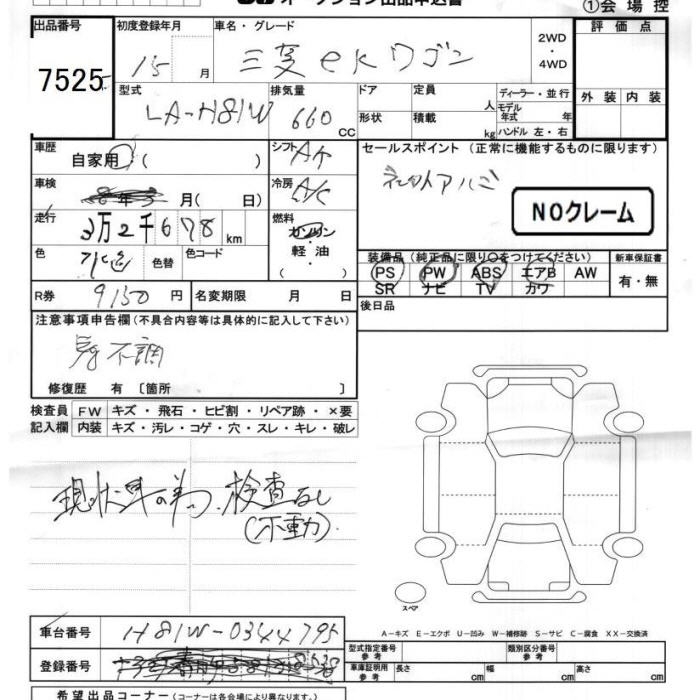 オークション出品申込書
①会場控
出品番号 初度登録年月 車名・グレード 評価点
7525 15 月 三菱 eKワゴン 2WD・4WD
型式 排気量 ドア 定員 ディーラー・並行 外装 内装
LA-H81W 660 CC 形状 積載 人 kg モデル年式 年 ハンドル 左・右
車歴 自家用 ( ) シフト AT セールスポイント (正常に機能するものに限ります)
車検 月(日) 冷房 A/C 社外アルミ
NOクレーム
走行 3万2千678 km 燃料 ガソリン・軽油
色 水色 色替 色コード 装備品(純正品に限り○をつけてください) 新車保証書
PS PW ABS エアB AW 有・無
SR ナビ TV カワ
R券 9150 円 名変期限 月 日 後日品
注意事項申告欄(不具合内容等は具体的に記入して下さい)
不調
修復歴 有〔箇所 〕
検査員 FW キズ・飛石・ヒビ割・リペア跡・×要
記入欄 内装 キズ・汚レ・コゲ・穴・スレ・キレ・破レ
現状車の為、検査なし
(不動)
スペア
A-キズ E-エクボ U-凹み W-補修跡 S-サビ C-腐食 XX-交換済
車台番号 H81W-0344795
型式指定番号 参考 類別区分番号 参考
登録番号 車庫証明用 参考 長さ cm 幅 cm 高さ cm
希望出品コーナー(コーナーは各会場により異なります。)